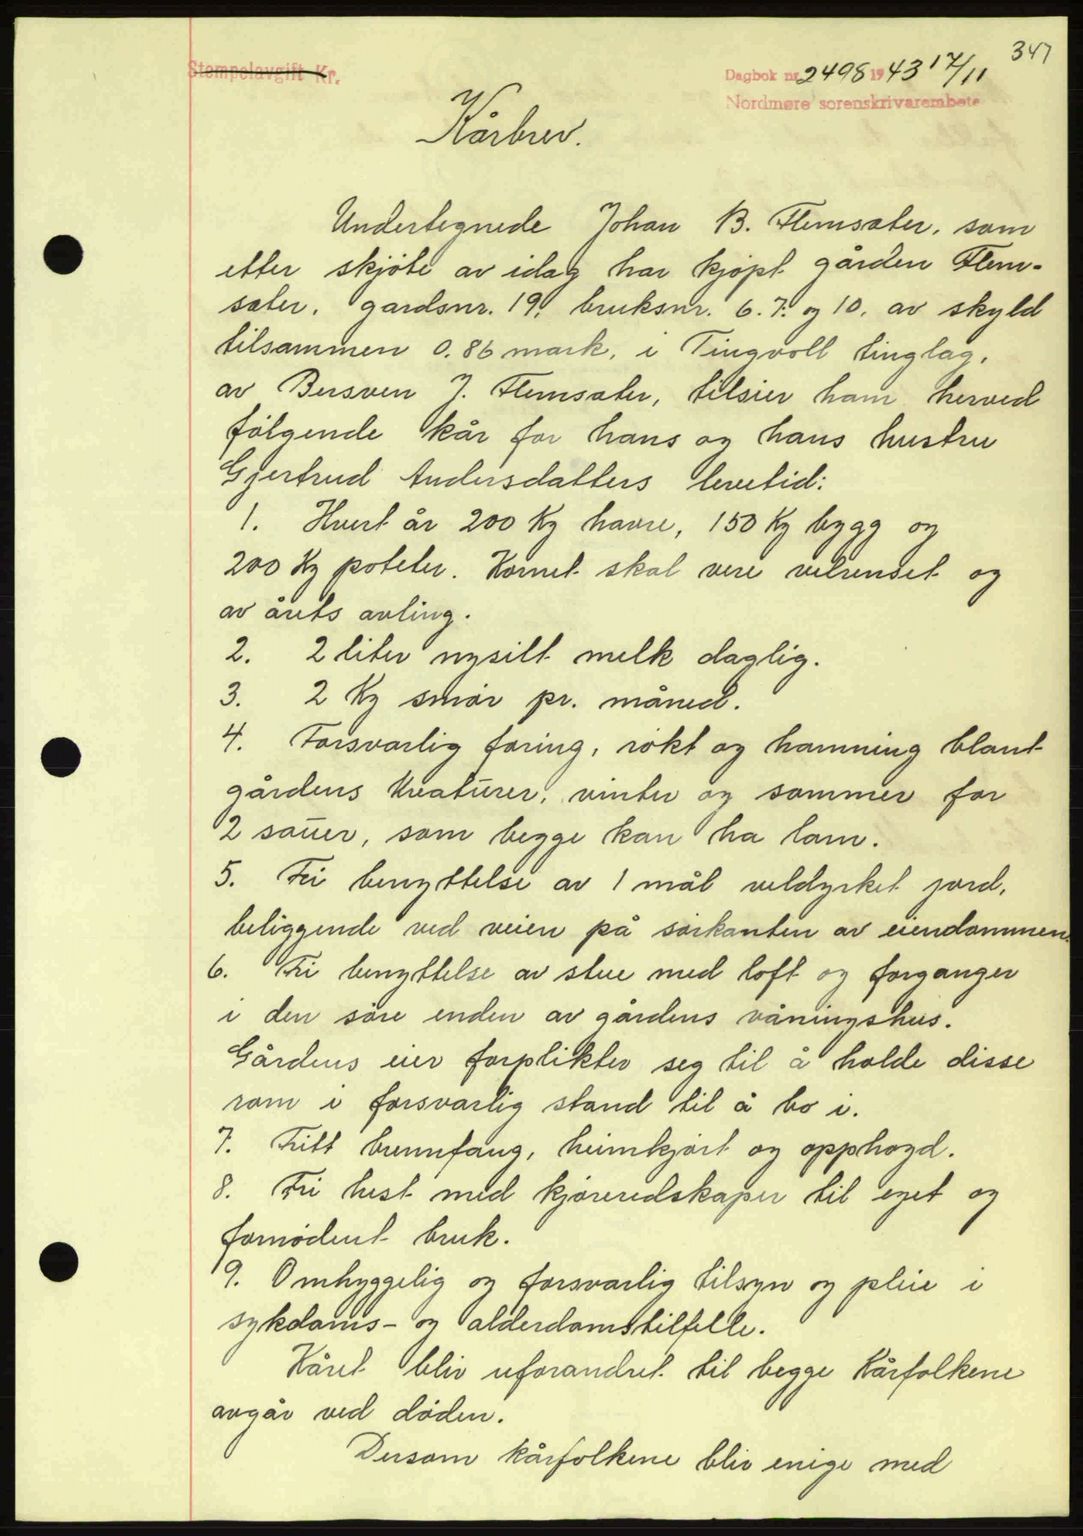 347
Stempelavgift Kr.
Dagbok nr. 2498 1943 17/11
Nordmøre sorenskrivarembete
Kårbrev.
Undertegnede Johan B. Flemsæter, som
etter skjøte av idag har kjøpt gården Flem-
sæter, gardsnr. 19, bruksnr. 6. 7. og 10, av skyld
tilsammen 0.86 mark, i Tingvoll tinglag,
av Bersven J. Flemsæter, tilsier ham herved
følgende kår for hans og hans hustru
Gjertrud Andersdatters levetid:
1. Hvert år 200 Kg havre, 150 Kg bygg og
200 Kg poteter. Kornet skal være velrenset og
av årets avling.
2. 2 liter nysilt melk daglig.
3. 2 Kg smør pr. måned.
4. Forsvarlig foring, røkt og hamning blant
gårdens kreaturer, vinter og sommer for
2 sauer, som begge kan ha lam.
5. Fri benyttelse av 1 mål veldyrket jord,
beliggende ved veien på sørkanten av eiendommen.
6. Fri benyttelse av stue med loft og forganger
i den søre enden av gårdens våningshus.
Gårdens eier forplikter seg til å holde disse
rom i forsvarlig stand til å bo i.
7. Fritt brennfang, heimkjørt og opphogd.
8. Fri hest med kjøreredskaper til eget og
fornødent bruk.
9. Omhyggelig og forsvarlig tilsyn og pleie i
sykdoms- og alderdomstilfelle.
Kåret blir uforandret til begge kårfolkene
avgår ved døden.
Dersom kårfolkene blir enige med